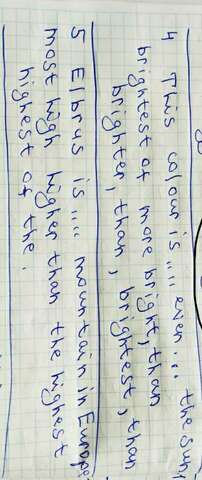 4 This colour is .... even .... the sun!
brightest of more bright, than
brighter, than, brightest, than
5 Elbrus is .... mountain in Europe
most high higher than the highest
highest of the.